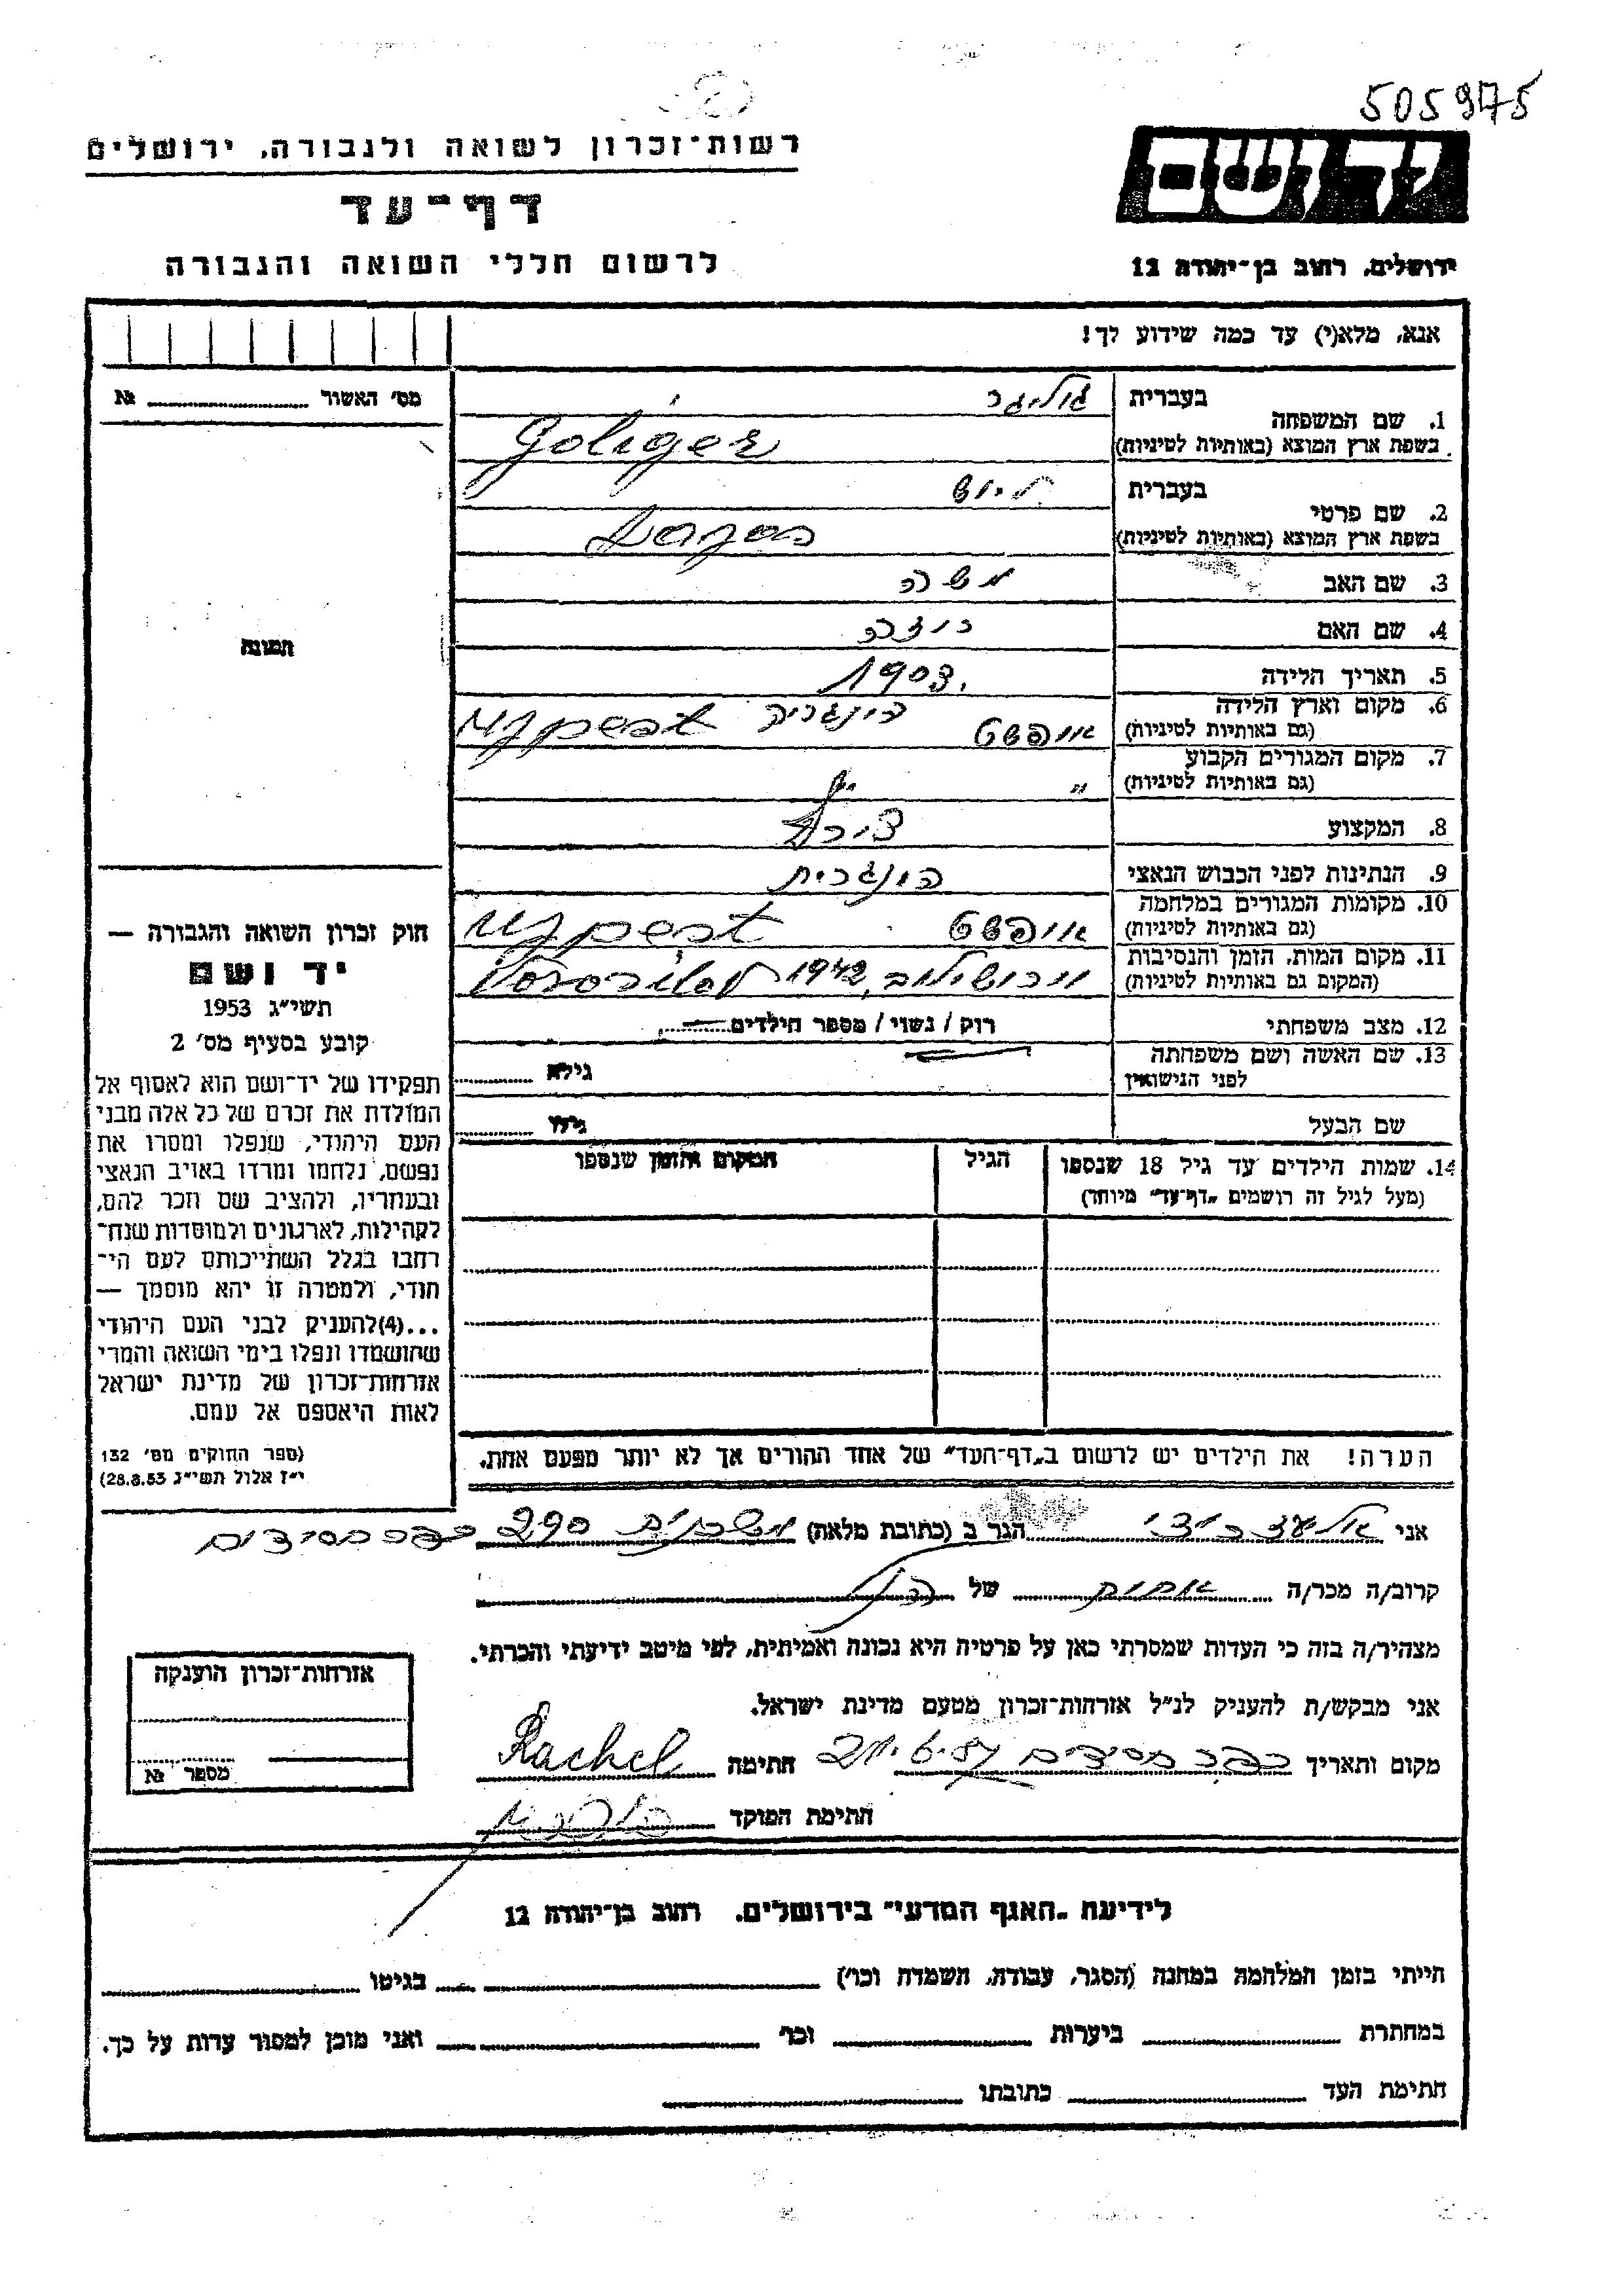 505975
רשות־זכרון לשואה ולגבורה, ירושלים
יד ושם
דף־עד
לרשום חללי השואה והגבורה
ירושלים, רחוב בן־יהודה 12
אנא, מלא(י) עד כמה שידוע לך!
מס' האשור № 
תמונה
1. שם המשפחה
בעברית גוליגר
בשפת ארץ המוצא (באותיות לטיניות) Goliger
2. שם פרטי
בעברית ליוש
בשפת ארץ המוצא (באותיות לטיניות)
3. שם האב משה
4. שם האם רוזה
5. תאריך הלידה 1903
6. מקום וארץ הלידה
(גם באותיות לטיניות) אויפשט הונגריה Ujpest
7. מקום המגורים הקבוע
(גם באותיות לטיניות) " "
8. המקצוע
9. הנתינות לפני הכבוש הנאצי הונגרית
10. מקומות המגורים במלחמה
(גם באותיות לטיניות) אויפשט Ujpest
11. מקום המות, הזמן והנסיבות
(המקום גם באותיות לטיניות) וורושילוב, 1942
12. מצב משפחתי רוק / נשוי / מספר הילדים
13. שם האשה ושם משפחתה
לפני הנישואין גילא
שם הבעל גילו
14. שמות הילדים עד גיל 18 שנספו הגיל המקום והזמן שנספו
(מעל לגיל זה רושמים „דף־עד" מיוחד)
חוק זכרון השואה והגבורה —
יד ושם
תשי"ג 1953
קובע בסעיף מס' 2
תפקידו של יד־ושם הוא לאסוף אל
המולדת את זכרם של כל אלה מבני
העם היהודי, שנפלו ומסרו את
נפשם, נלחמו ומרדו באויב הנאצי
ובעוזריו, ולהציב שם וזכר להם,
לקהילות, לארגונים ולמוסדות שנח־
רחבו בגלל השתייכותם לעם הי־
הודי, ולמטרה זו יהא מוסמך —
...(4)להעניק לבני העם היהודי
שהושמדו ונפלו בימי השואה והמרי
אזרחות־זכרון של מדינת ישראל
לאות היאספם אל עמם.
(ספר החוקים מס' 132
י"ז אלול תשי"ג 28.8.53)
הערה! את הילדים יש לרשום ב„דף־העד" של אחד ההורים אך לא יותר מפעם אחת.
אני אליעזר הגר ב (כתובת מלאה) 290 כפר חסידים
קרוב/ה מכר/ה אחות של הנ"ל
מצהיר/ה בזה כי העדות שמסרתי כאן על פרטיה היא נכונה ואמיתית, לפי מיטב ידיעתי והכרתי.
אני מבקש/ת להעניק לנ"ל אזרחות־זכרון מטעם מדינת ישראל.
מקום ותאריך כפר חסידים 21.6.57 חתימה Rachel
חתימת הפוקד
אזרחות־זכרון הוענקה
מספר №
לידיעת „האגף המדעי" בירושלים, רחוב בן־יהודה 12
הייתי בזמן המלחמה במחנה (הסגר, עבודה, השמדה וכו') בגיטו
במחתרת ביערות וכו' ואני מוכן למסור עדות על כך.
חתימת העד כתובתו